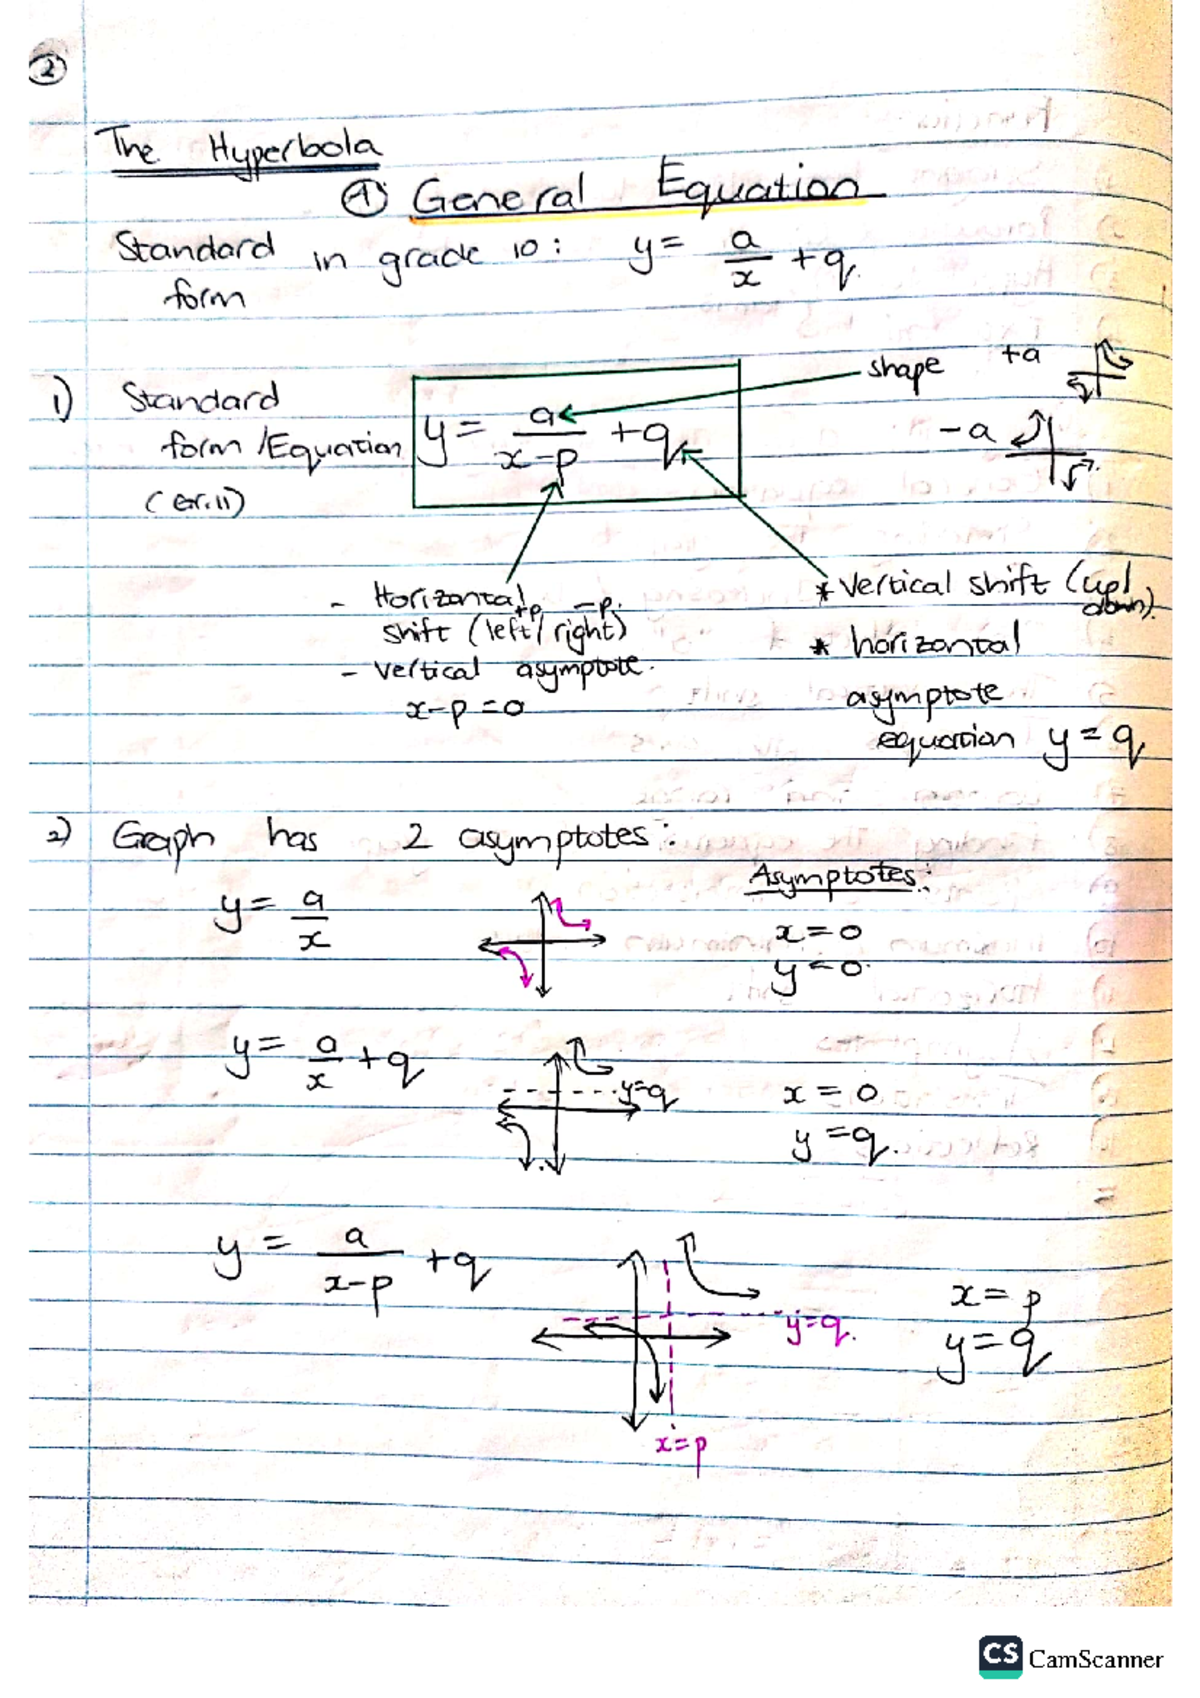 2
The Hyperbola
A General Equation
Standard in grade 10: y = a/x + q
form
1) Standard
form/Equation
(Gr.11)
y = a/(x-p) + q
shape
+a
-a
- Horizontal
+p -p
shift (left/right)
- vertical asymptote.
x-p=0
* Vertical shift (up/
down).
* horizontal
asymptote
equation y=q
2) Graph has 2 asymptotes:
Asymptotes:
y = a/x
x=0
y=0.
y = a/x + q
y=q
x=0
y=q.
y = a/(x-p) + q
y=q.
x=p
x=p
y=q
CS CamScanner